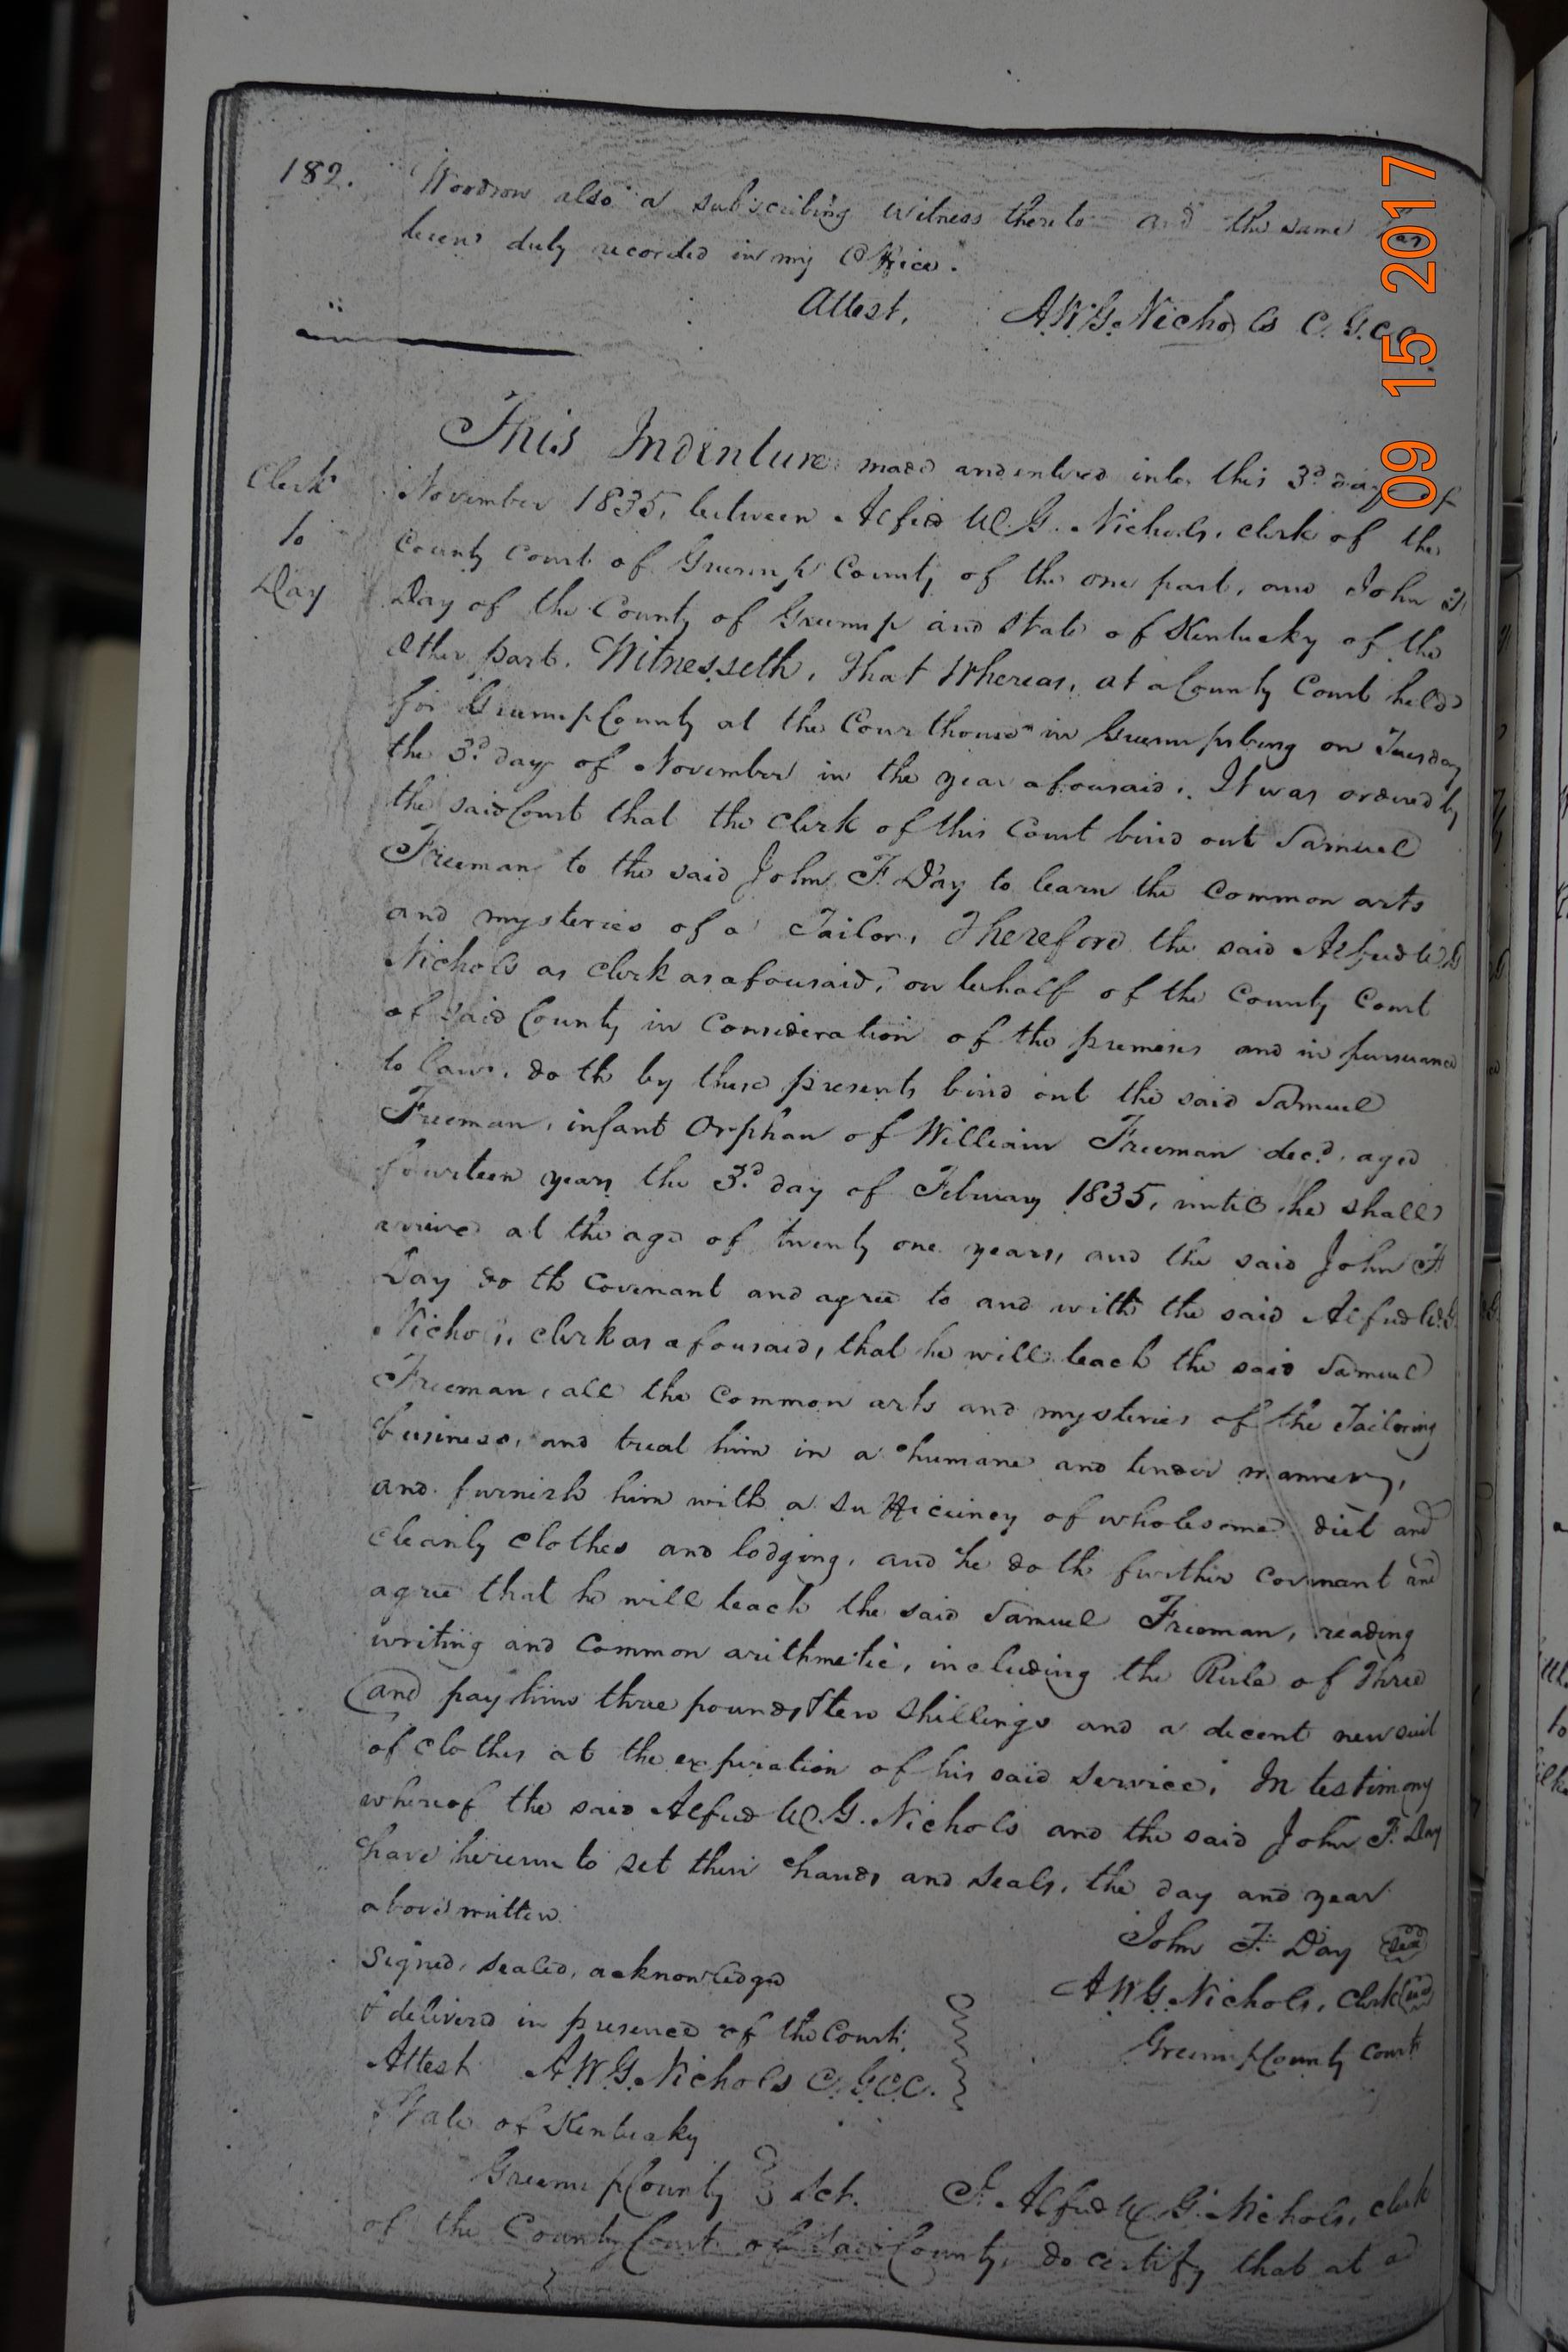 182. Woodrow also a subscribing witness thereto and the same has
been duly recorded in my Office.
Attest, A.W.G. Nichols C.G.C.C.
This Indenture made and entered into this 3d day of
Clerk
to
Day
November 1835, between Alfred W. G. Nichols, clerk of the
County Court of Greenup County of the one part, and John F.
Day of the County of Greenup and State of Kentucky of the
other part. Witnesseth, That Whereas, at a County Court held
for Greenup County at the Courthouse in Greenupsburg on Tuesday
the 3d day of November in the year aforesaid, It was ordered by
the said Court that the clerk of this Court bind out Samuel
Freeman to the said John F. Day to learn the common arts
and mysteries of a Tailor, Therefore the said Alfred W. G.
Nichols as clerk as aforesaid, on behalf of the County Court
of said County in consideration of the premises and in pursuance
to law, doth by these presents bind out the said Samuel
Freeman, infant Orphan of William Freeman decd. aged
fourteen years the 3d day of February 1835, until he shall
arrive at the age of twenty one years, and the said John F.
Day doth covenant and agree to and with the said Alfred W.G.
Nichols, clerk as aforesaid, that he will teach the said Samuel
Freeman, all the common arts and mysteries of the Tailoring
business, and treat him in a humane and tender manner,
and furnish him with a sufficiency of wholesome diet and
cleanly clothes and lodging, and he doth further covenant and
agree that he will teach the said Samuel Freeman, reading
writing and common arithmetic, including the Rule of Three
and pay him three pounds ten shillings and a decent new suit
of clothes at the expiration of his said service. In testimony
whereof the said Alfred W. G. Nichols and the said John F. Day
have hereunto set their hands and seals, the day and year
above written.
John F. Day Seal
Signed, sealed, acknowledged
A W G. Nichols, Clerk Seal
& delivered in presence of the Court.
Greenup County Court
Attest A.W.G. Nichols C.G.C.C.
State of Kentucky
Greenup County Sct. I. Alfred W. G. Nichols, clerk
of the County Court of said County, do certify that at a
09 15 2017